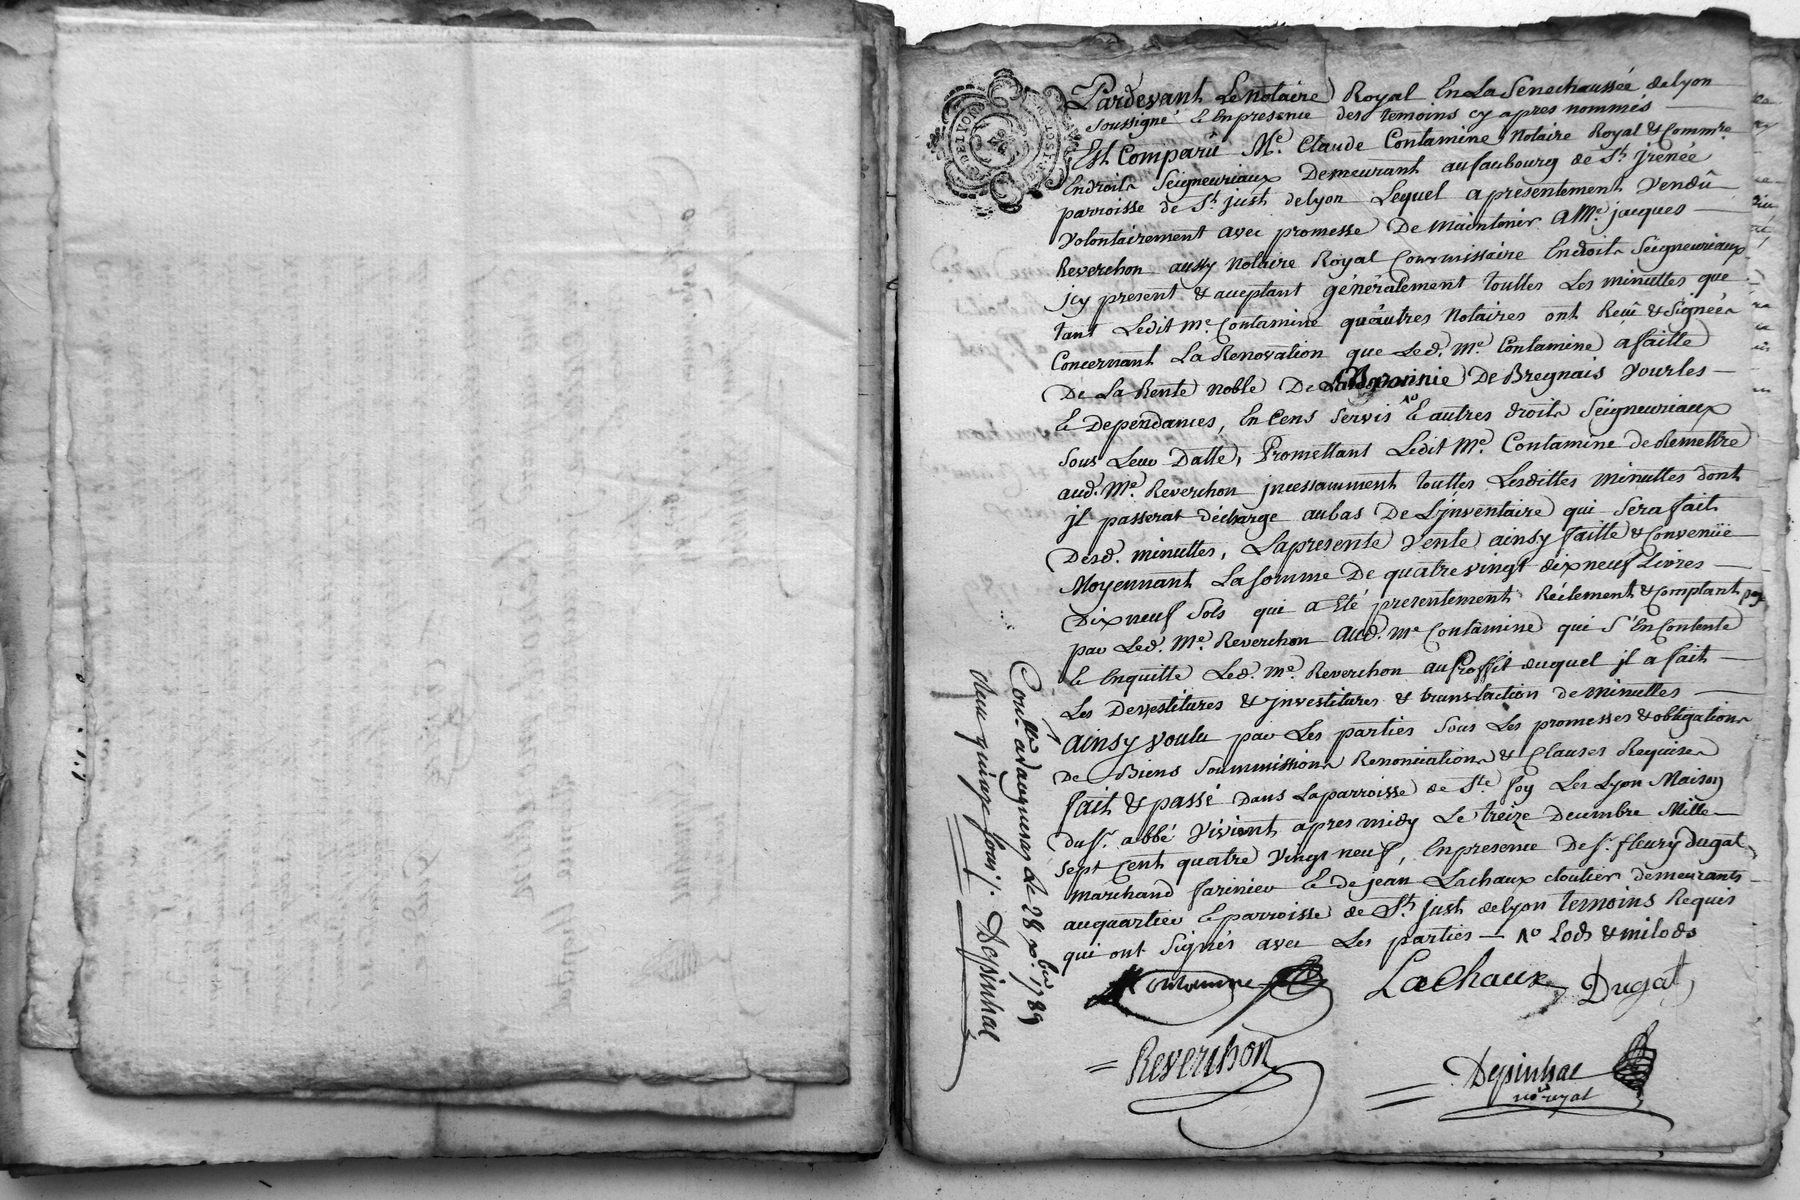 Pardevant Le Notaire Royal En La Senechaussée de Lyon
Soussigné & En presence des temoins cy apres nommés
Est Comparû Me. Claude Contamine Notaire Royal & Commre
En droits Seigneuriaux Demeurant au faubourg de St jrenée
parroisse de St just de Lyon Lequel a presentement Vendû
Volontairement avec promesse De maintenir A Me. jacques
Reverchon aussy Notaire Royal Commissaire En droits Seigneuriaux
jcy present & acceptant généralement touttes Les minuttes que
tant Ledit Me. Contamine qu'autres Notaires ont Reçü & Signées
Concernant La Renovation que Led. Me. Contamine a faitte
De La Rente Noble De De Bregnais Vourles
& Dependances, En Cens Servis & autres droits Seigneuriaux
Sous Leur Datte, Promettant Ledit Me. Contamine de demettre
aud. Me. Reverchon jncessamment touttes Lesdittes minuttes dont
jl passerat décharge au bas De L'jnventaire qui Sera fait
Desd. minuttes, La presente Vente ainsy faitte & Convenüe
Moyennant La Somme De quatre vingt dix neuf Livres
Dix neuf Sols qui a Eté presentement Réelement & Comptant payé
par Led. Me. Reverchon aud. Me Contamine qui S'En Contente
& En quitte Led. Me. Reverchon au Proffit duquel jl a fait
Les Devestitures & jnvestitures & translaction de minuttes
Ainsy voulu par Les parties Sous Les promesses & obligations
De Biens Soummissions Renonciations & Clauses Requises
fait & passé Dans La parroisse de Ste foy Les Lyon Maison
du Sr. abbé Vivient apres midy Le treize Decembre Mille
Sept Cent quatre Vingt neuf, En presence De Sr. fleury Dugat
Marchand farinier & de jean Lachaux cloutier demeurants
au quartier & parroisse de St. just de Lyon temoins Requis
qui ont Signés avec Les parties — No Lods & milods
Contamine Lachaux Dugat
Reverchon Depinhac
no royal
Conllé a Vaugneray Le 28 Xbre 1789
deux quinze sous /. Depinhac